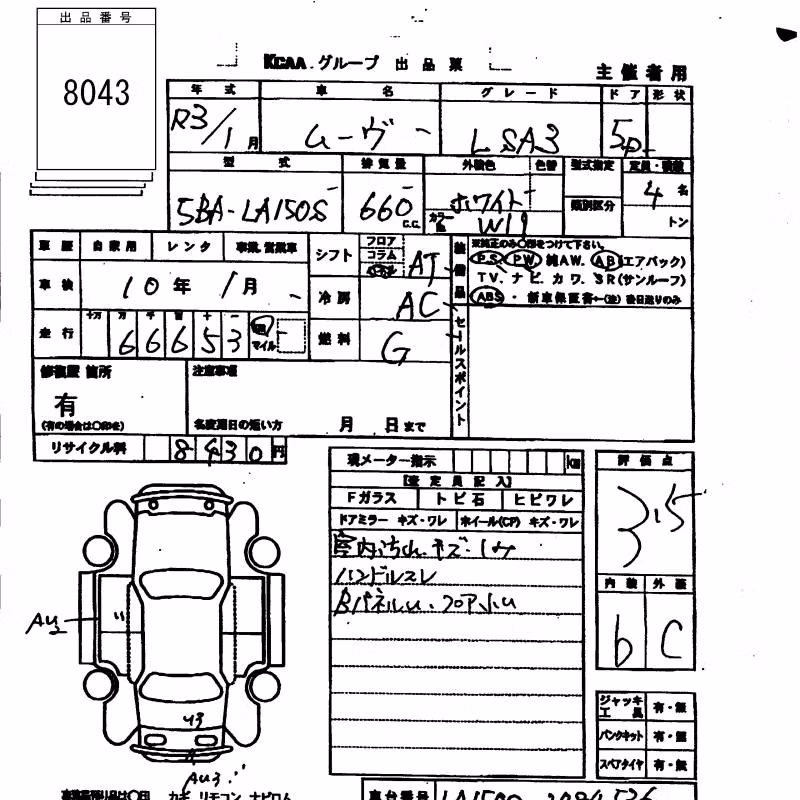 出品番号
8043
KCAA グループ 出品票
主催者用
年式 車名 グレード ドア 形状
R3/1月 ムーヴ LSA3 5D
型式 排気量 外装色 色替 型式指定 定員・積載
5BA-LA150S 660 C.C. ホワイト カラーNo. W19 類別区分 4名
トン
車歴 自家用 レンタ 事業.営業車 シフト フロア コラム AT
装備品 ※純正のみ○印をつけて下さい。
PS PW 純AW. AB(エアバック)
TV. ナビ. カワ. SR(サンルーフ)
ABS・新車保証書←(注)後日送りのみ
車検 10年1月 冷房 AC
走行 十万 万 千 百 十 一 66653 km マイル 燃料 G
セールスポイント
修復歴 箇所 注意事項
有
(有の場合は○印を) 名変期日の短い方 月 日まで
リサイクル料 8430円
現メーター指示 km
[査定員記入]
Fガラス トビ石 ヒビワレ
ドアミラー キズ・ワレ ホイール(CP) キズ・ワレ
室内よごれ.キズ.シミ
ハンドルスレ
BパネルU.フロア小U
評価点
3.5
内装 外装
b C
AU2
U3
AU3
ジャッキ工具 有・無
パンクキット 有・無
スペアタイヤ 有・無
カギ リモコン ナビロム
車台番号